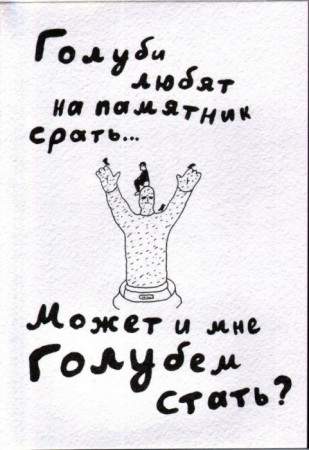 Голуби
любят
на памятник
срать...
Может и мне
Голубем
стать?